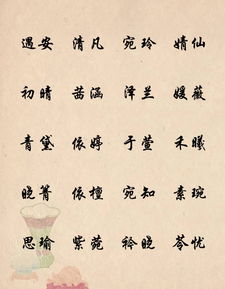 遇安 清凡 宛玲 婧仙
初晴 茜涵 泽兰 媛薇
青黛 依婷 于萱 禾曦
晚箐 依檀 宛知 素琬
思瑜 紫菀 衿晚 苓忧